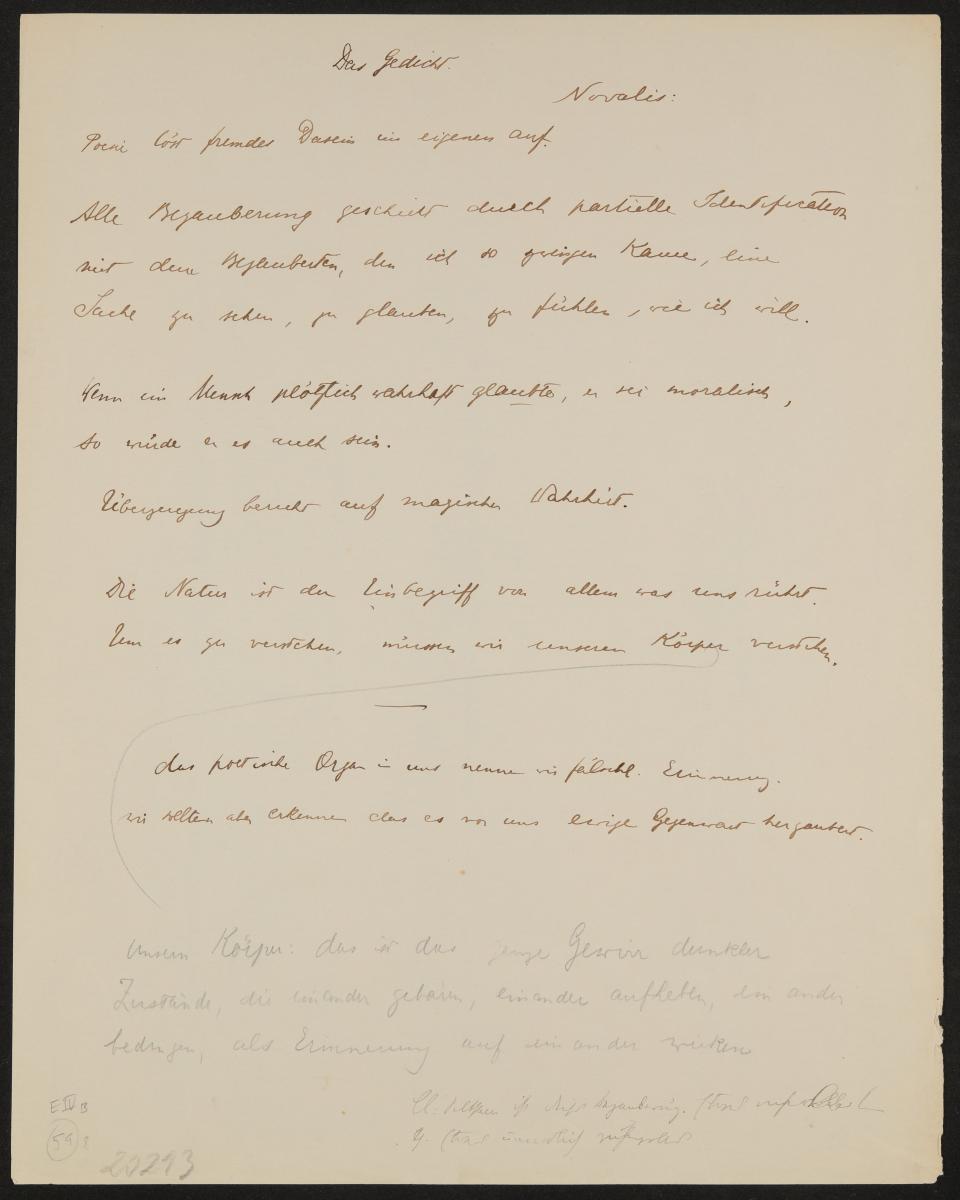 Das Gedicht.
Novalis:
Poesie löst fremdes Dasein in eigenem auf.
Alle Bezauberung geschieht durch partielle Identification
mit dem Bezauberten, den ich so zwingen kann, eine
Sache zu sehen, zu glauben, zu fühlen, wie ich will.
Wenn ein Mensch plötzlich wahrhaft glaubte, er sei moralisch,
so würde er es auch sein.
Überzeugung beruht auf magischer Wahrheit.
Die Natur ist der Einbegriff von allem was uns rührt.
Um es zu verstehen, müssen wir unseren Körper verstehen.
das poetische Organ in uns nennen wir fälschl. Erinnerung.
wir sollten aber erkennen das es vor uns ewige Gegenwart herzaubert.
Unsern Körper: das ist das ganze Gewirr dunkler
Zustände, die einander gebären, einander aufheben, ein ander
bedingen, als Erinnerung auf ein ander wirken
E IV B
59
20293